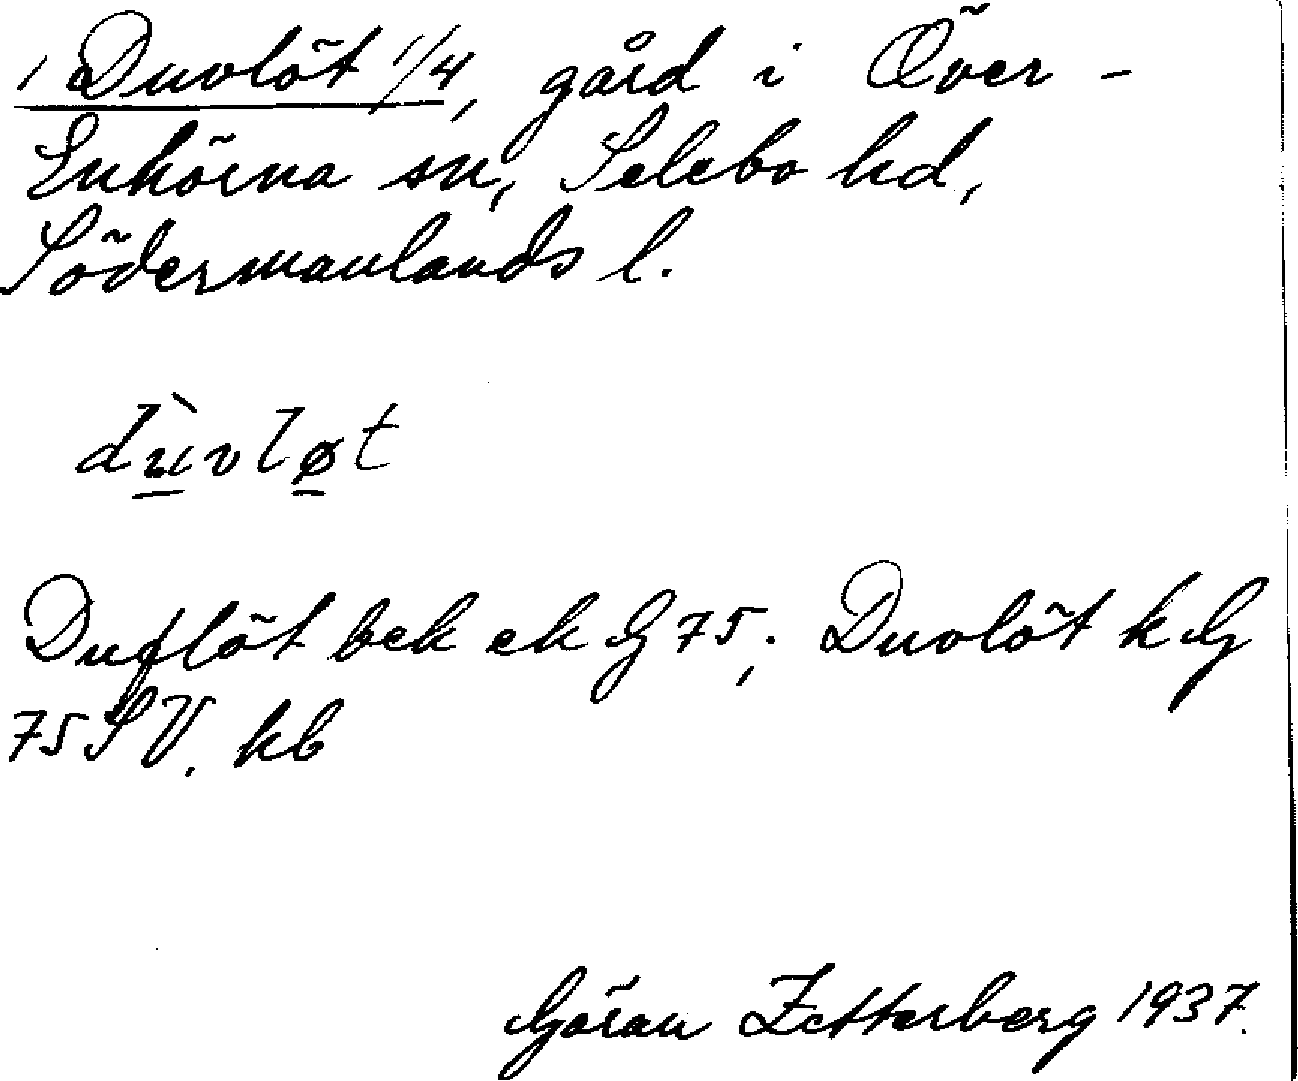 1 Duvlöt 1/4, gård i Över-
Enhörna sn, Selebo hd,
Södermanlands l.
dùvløt
Duflöt bek ek G 75; Duvlöt k G
75 SV. kb
Göran Zetterberg 1937.